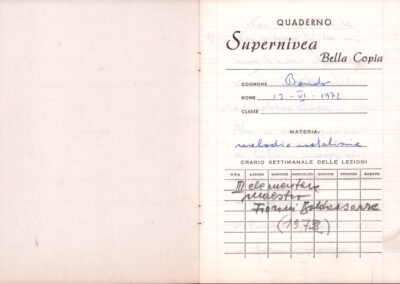 QUADERNO
Supernivea
Bella Copia
COGNOME Bondo
NOME 13 - VI - 1972
CLASSE
MATERIA:
melodie natalinie
ORARIO SETTIMANALE DELLE LEZIONI
ORA LUNEDI MARTEDI MERCOLEDI GIOVEDI VENERDI SABATO
III elementare
maestro
Fiorini Baldassarre
(1972)